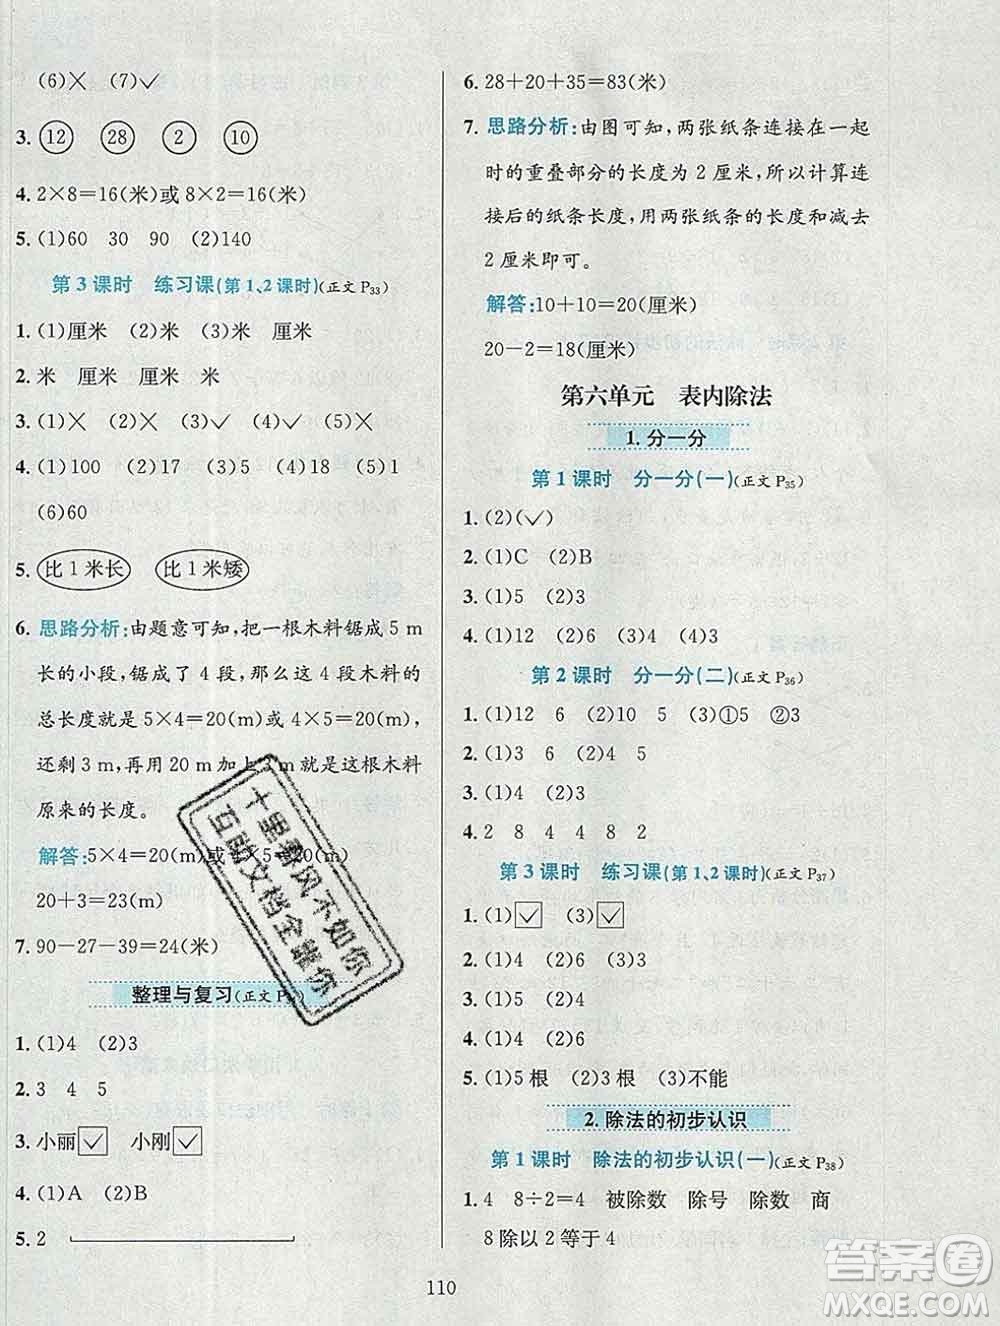 (6)✕ (7)✓
3. 12 28 2 10
4. 2×8=16(米)或 8×2=16(米)
5. (1)60 30 90 (2)140
第 3 课时 练习课(第 1、2 课时)(正文 P33)
1. (1)厘米 (2)米 (3)米 厘米
2. 米 厘米 厘米 米
3. (1)✕ (2)✕ (3)✓ (4)✓ (5)✕
4. (1)100 (2)17 (3)5 (4)18 (5)16
(6)60
5. 比 1 米长 比 1 米矮
6. 思路分析:由题意可知,把一根木料锯成 5 m
长的小段,锯成了 4 段,那么这 4 段木料的
总长度就是 5×4=20(m)或 4×5=20(m),
还剩 3 m,再用 20 m 加上 3 m 就是这根木料
原来的长度。
解答:5×4=20(m)或 4×5=20(m)
20+3=23(m)
7. 90-27-39=24(米)
整理与复习(正文 P
1. (1)4 (2)3
2. 3 4 5
3. 小丽✓ 小刚✓
4. (1)A (2)B
5. 2
6. 28+20+35=83(米)
7. 思路分析:由图可知,两张纸条连接在一起
时的重叠部分的长度为 2 厘米,所以计算连
接后的纸条长度,用两张纸条的长度和减去
2 厘米即可。
解答:10+10=20(厘米)
20-2=18(厘米)
第六单元 表内除法
1. 分一分
第 1 课时 分一分(一)(正文 P35)
1. (2)(✓)
2. (1)C (2)B
3. (1)5 (2)3
4. (1)12 (2)6 (3)4 (4)3
第 2 课时 分一分(二)(正文 P36)
1. (1)12 6 (2)10 5 (3)①5 ②3
2. (1)3 6 (2)4 5
3. (1)4 (2)3
4. 2 8 4 4 8 2
第 3 课时 练习课(第 1、2 课时)(正文 P37)
1. (1)✓ (3)✓
2. (1)4 (2)6 (3)6
3. (1)5 (2)4
4. (1)2 (2)6
5. (1)5 根 (2)3 根 (3)不能
2. 除法的初步认识
第 1 课时 除法的初步认识(一)(正文 P38)
1. 4 8÷2=4 被除数 除号 除数 商
8 除以 2 等于 4
110
十里春风不如你
互助文档全靠你
答案圈
MXQE.COM